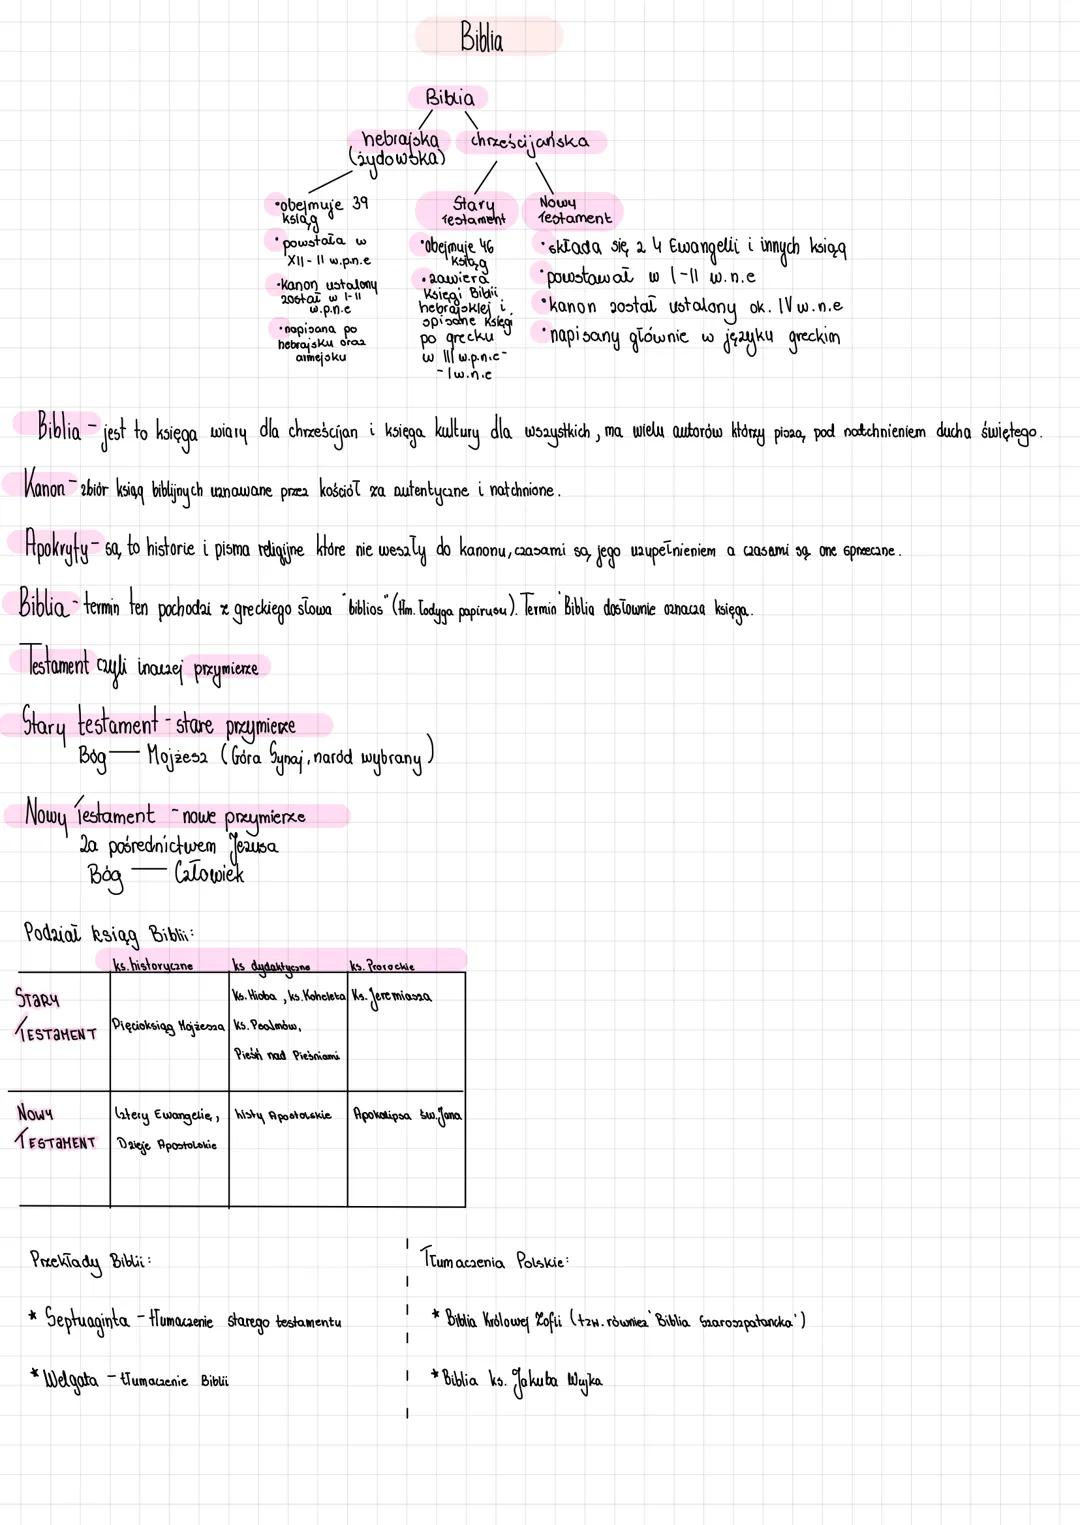 Biblia
Biblia
hebrajska
(żydowska)
chrześcijańska
•obejmuje 39
ksiąg
•powstała w
XII-II w.p.n.e
•kanon ustalony
został w I-II
w.p.n.e
•napisana po
hebrajsku oraz
armejsku
Stary
Testament
•obejmuje 46
ksiąg
•zawiera
Księgi Biblii
hebrajskiej i
spisane Księgi
po grecku
w III w.p.n.e-
-I w.n.e
Nowy
Testament
•składa się z 4 Ewangelii i innych ksiąg
•powstawał w I-II w.n.e
•kanon został ustalony ok. IV w.n.e
•napisany głównie w języku greckim
Biblia - jest to księga wiary dla chrześcijan i księga kultury dla wszystkich, ma wielu autorów którzy piszą pod natchnieniem ducha świętego.
Kanon - zbiór ksiąg biblijnych uznawane przez kościół za autentyczne i natchnione.
Apokryfy - są to historie i pisma religijne które nie weszły do kanonu, czasami są jego uzupełnieniem a czasami są one sprzeczne.
Biblia - termin ten pochodzi z greckiego słowa "biblios" (tłm. łodyga papirusu). Termin Biblia dosłownie oznacza księga.
Testament czyli inaczej przymierze
Stary testament - stare przymierze
Bóg — Mojżesz (Góra Synaj, naród wybrany)
Nowy Testament - nowe przymierze
Za pośrednictwem Jezusa
Bóg — Człowiek
Podział ksiąg Biblii:
ks. historyczne ks dydaktyczne ks. Prorockie
STARY TESTAMENT
Pięcioksiąg Mojżesza
Ks. Hioba, ks. Koheleta
ks. Psalmów,
Pieśń nad Pieśniami
Ks. Jeremiasza
NOWY TESTAMENT
Cztery Ewangelie,
Dzieje Apostolskie
listy Apostolskie
Apokalipsa św. Jana
Przekłady Biblii:
* Septuaginta - tłumaczenie starego testamentu
* Welgata - tłumaczenie Biblii
Tłumaczenia Polskie:
* Biblia Królowej Zofii (tzw. również 'Biblia Szaroszpatancka')
* Biblia ks. Jakuba Wujka